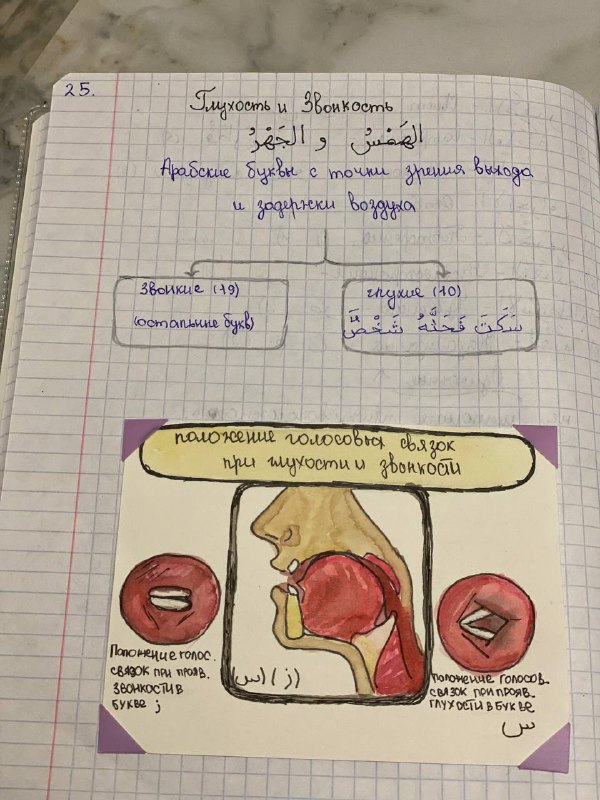 25.
Глухость и Звонкость
الهَمْسُ و الجَهْرُ
Арабские буквы с точки зрения выхода
и задержки воздуха
Звонкие (19)
(остальные букв)
глухие (10)
سَكَتَ فَحَثَّهُ شَخْصٌ
положение голосовых связок
при глухости и звонкости
Положение голос.
связок при прояв.
звонкости в
букве ز
(ز) (س)
положение голосов.
связок при прояв.
глухости в букве
س